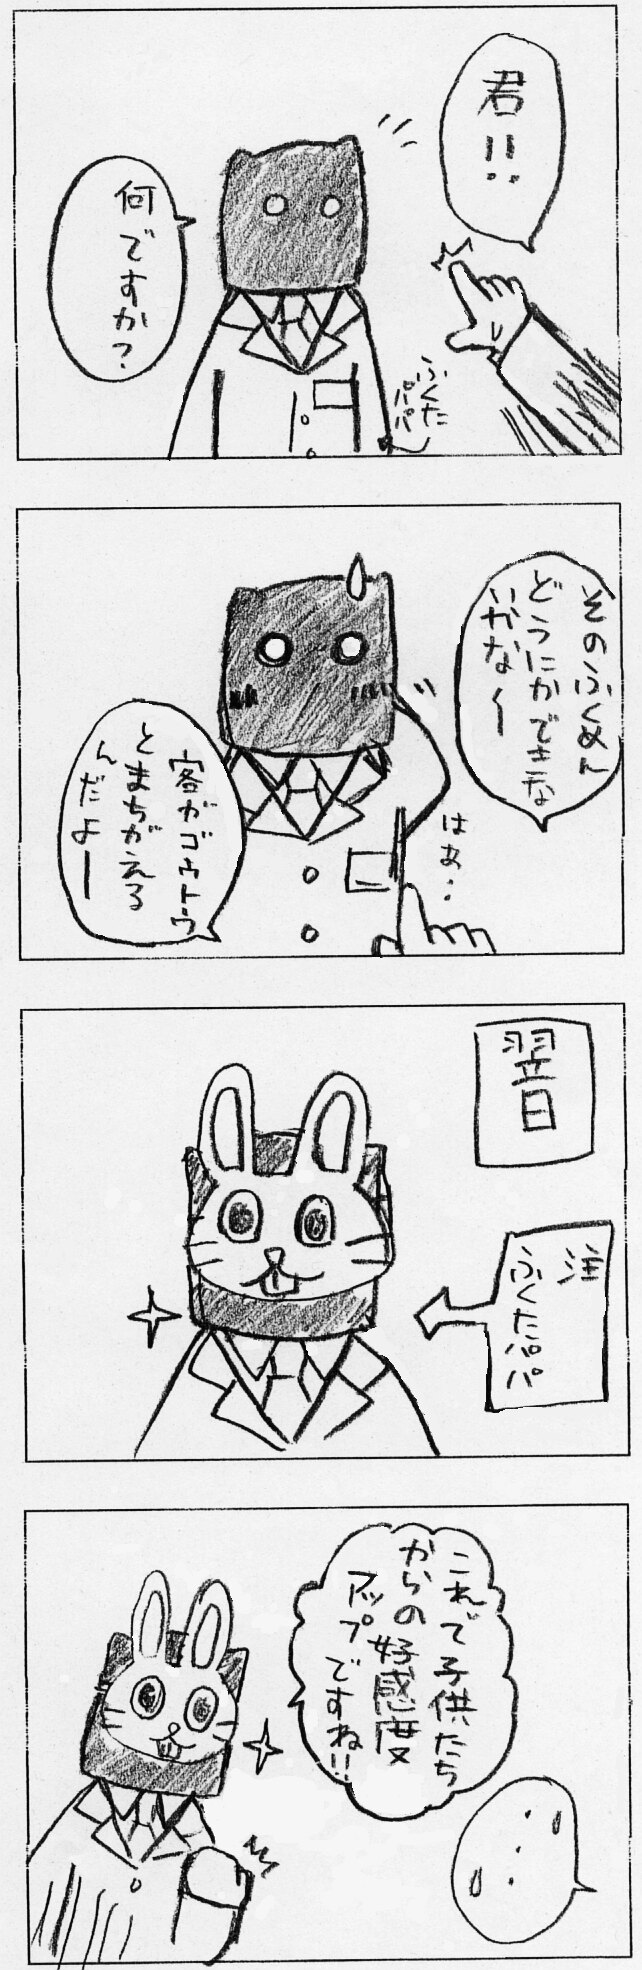 君!!
何ですか?
ふくた
パパ
そのふくめん
どうにかできな
いかな〜
客がゴウトウ
とまちがえる
んだよー
はぁ・・
翌日
注
ふくたパパ
これで子供たち
からの好感度
アップですね!!
・・・